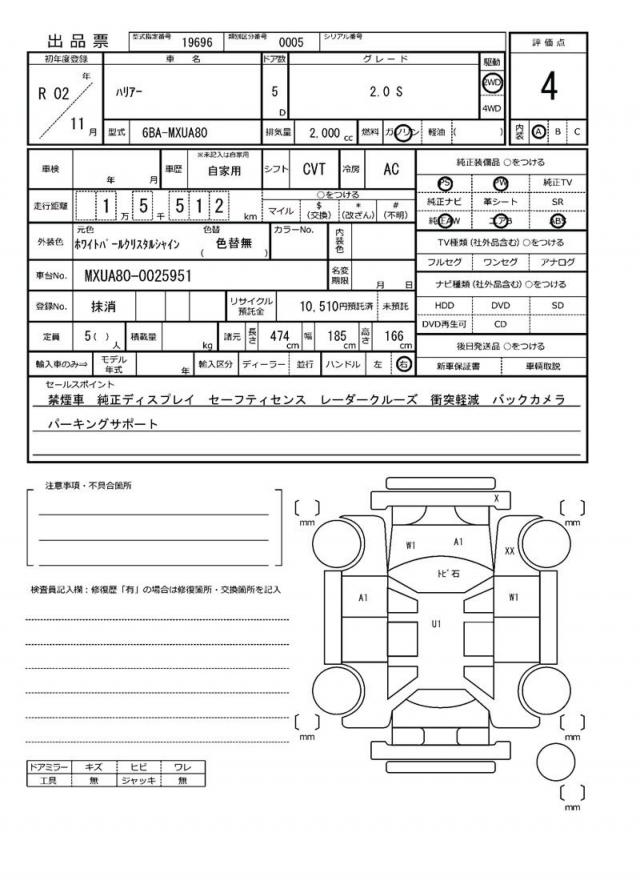 出品票 型式指定番号 19696 類別区分番号 0005 シリアル番号
評価点
初年度登録 車名 ドア数 グレード 駆動
R 02 年 11 月 ハリアー 5 D 2.0 S 2WD 4WD
4
型式 6BA-MXUA80 排気量 2,000 cc 燃料 ガソリン 軽油 ( ) 内装 A B C
車検 年 月 車歴 ※未記入は自家用 自家用 シフト CVT 冷房 AC
純正装備品 ○をつける
PS PW 純正TV
純正ナビ 革シート SR
純正AW エアB ABS
走行距離 1 万 5 千 5 1 2 km ○をつける
マイル $ (交換) * (改ざん) # (不明)
外装色 元色 ホワイトパールクリスタルシャイン 色替 ( 色替無 ) カラーNo. 内装色
TV種類 (社外品含む) ○をつける
フルセグ ワンセグ アナログ
車台No. MXUA80-0025951 名変期限 月 日
ナビ種類 (社外品含む) ○をつける
登録No. 抹消 リサイクル預託金 10,510円預託済 未預託
HDD DVD SD
DVD再生可 CD
定員 5 ( ) 人 積載量 kg 諸元 長さ 474 cm 幅 185 cm 高さ 166 cm
後日発送品 ○をつける
輸入車のみ⇒ モデル年式 年 輸入区分 ディーラー 並行 ハンドル 左 右
新車保証書 車輌取説
セールスポイント
禁煙車 純正ディスプレイ セーフティセンス レーダークルーズ 衝突軽減 バックカメラ
パーキングサポート
注意事項・不具合箇所
X
mm mm
W1 A1 XX
トビ石
検査員記入欄:修復歴「有」の場合は修復箇所・交換箇所を記入
A1 W1
U1
mm mm
ドアミラー キズ ヒビ ワレ
工具 無 ジャッキ 無
mm